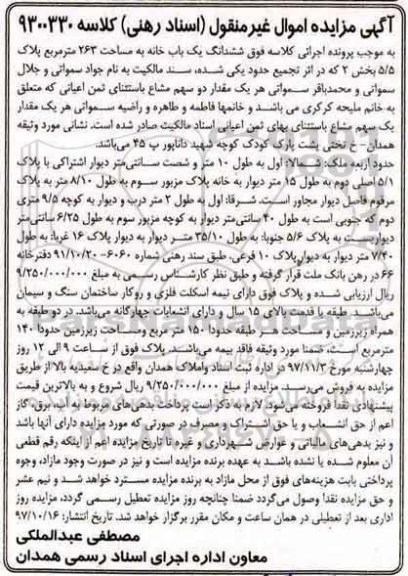 آگهی مزایده اموال غیرمنقول (اسناد رهنی) کلاسه ۹۳۰۰۳۳۰
به موجب پرونده اجرائی کلاسه فوق ششدانگ یک باب خانه به مساحت ۲۶۳ مترمربع پلاک
۵/۵ بخش ۲ که در اثر تجمیع حدود یکی شده، سند مالکیت به نام جواد سمواتی و جلال
سمواتی و محمدباقر سمواتی هر یک مقدار دو سهم مشاع باستثنای ثمن اعیانی که متعلق
به خانم ملیحه کرکری می باشد و خانمها فاطمه و طاهره و راضیه سمواتی هر یک مقدار
یک سهم مشاع باستثنای بهای ثمن اعیانی اسناد مالکیت صادر شده است. نشانی مورد وثیقه
همدان- خ تختی پشت پارک کودک کوچه شهید داناپور پ ۴۵ می‌باشد.
حدود اربعه ملک: شمالا: اول به طول ۱۰ متر و شصت سانتی‌متر دیوار اشتراکی با پلاک
۵/۱ اصلی دوم به طول ۱۵ متر دیوار به خانه پلاک مزبور سوم به طول ۸/۱۰ متر به پلاک
مرقوم فاصل دیوار مجاور است. شرقا: اول به طول ۲ متر درب و دیوار به کوچه ۹/۵ متری
دوم که جنوبی است به طول ۴۰ سانتی‌متر دیوار به کوچه مزبور سوم به طول ۶/۲۵ سانتی‌متر
دیواریست به پلاک ۵/۶ جنوبا: به طول ۳۵/۱۰ متر دیوار به دیوار پلاک ۱۶ غربا: به طول
۷/۴۰ متر دیوار به دیوار پلاک ۱۰ فرعی. طبق سند رهنی شماره ۶۰۶۰- ۹۱/۱۰/۲۰ دفترخانه
۶۶ در رهن بانک ملت قرار گرفته و طبق نظر کارشناس رسمی به مبلغ ۹/۲۵۰/۰۰۰/۰۰۰
ریال ارزیابی شده و پلاک فوق دارای نیمه اسکلت فلزی و روکار ساختمان سنگ و سیمان
می‌باشد. طبقه با قدمت بالای ۱۵ سال و دارای انشعابات چهارگانه می‌باشد. در دو طبقه به
همراه زیرزمین و مساحت هر طبقه حدودا ۱۵۰ متر مربع ومساحت زیرزمین حدودا ۱۴۰
مترمربع است، ضمنا مورد وثیقه فاقد بیمه می‌باشد. پلاک فوق از ساعت ۹ الی ۱۲ روز
چهارشنبه مورخ ۹۷/۱۱/۳ در اداره ثبت اسناد واملاک همدان واقع در خ سعیدیه بالا از طریق
مزایده به فروش می‌رسد. مزایده از مبلغ ۹/۲۵۰/۰۰۰/۰۰۰ ریال شروع و به بالاترین قیمت
پیشنهادی نقدا فروخته می‌شود. لازم به ذکر است پرداخت بدهی‌های مربوط به آب، برق، گاز
اعم از حق انشعاب و یا حق اشتراک و مصرف در صورتی که مورد مزایده دارای آنها باشد
و نیز بدهی‌های مالیاتی و عوارض شهرداری و غیره تا تاریخ مزایده اعم از اینکه رقم قطعی
آن معلوم شده یا نشده باشد به عهده برنده مزایده است و نیز در صورت وجود مازاد، وجوه
پرداختی بابت هزینه‌های فوق از محل مازاد به برنده مزایده مسترد خواهد شد و نیم عشر
و حق مزایده نقدا وصول می‌گردد ضمنا چنانچه روز مزایده تعطیل رسمی گردد، مزایده روز
اداری بعد از تعطیلی در همان ساعت و مکان مقرر برگزار خواهد شد. تاریخ انتشار: ۹۷/۱۰/۱۶
مصطفی عبدالملکی
معاون اداره اجرای اسناد رسمی همدان